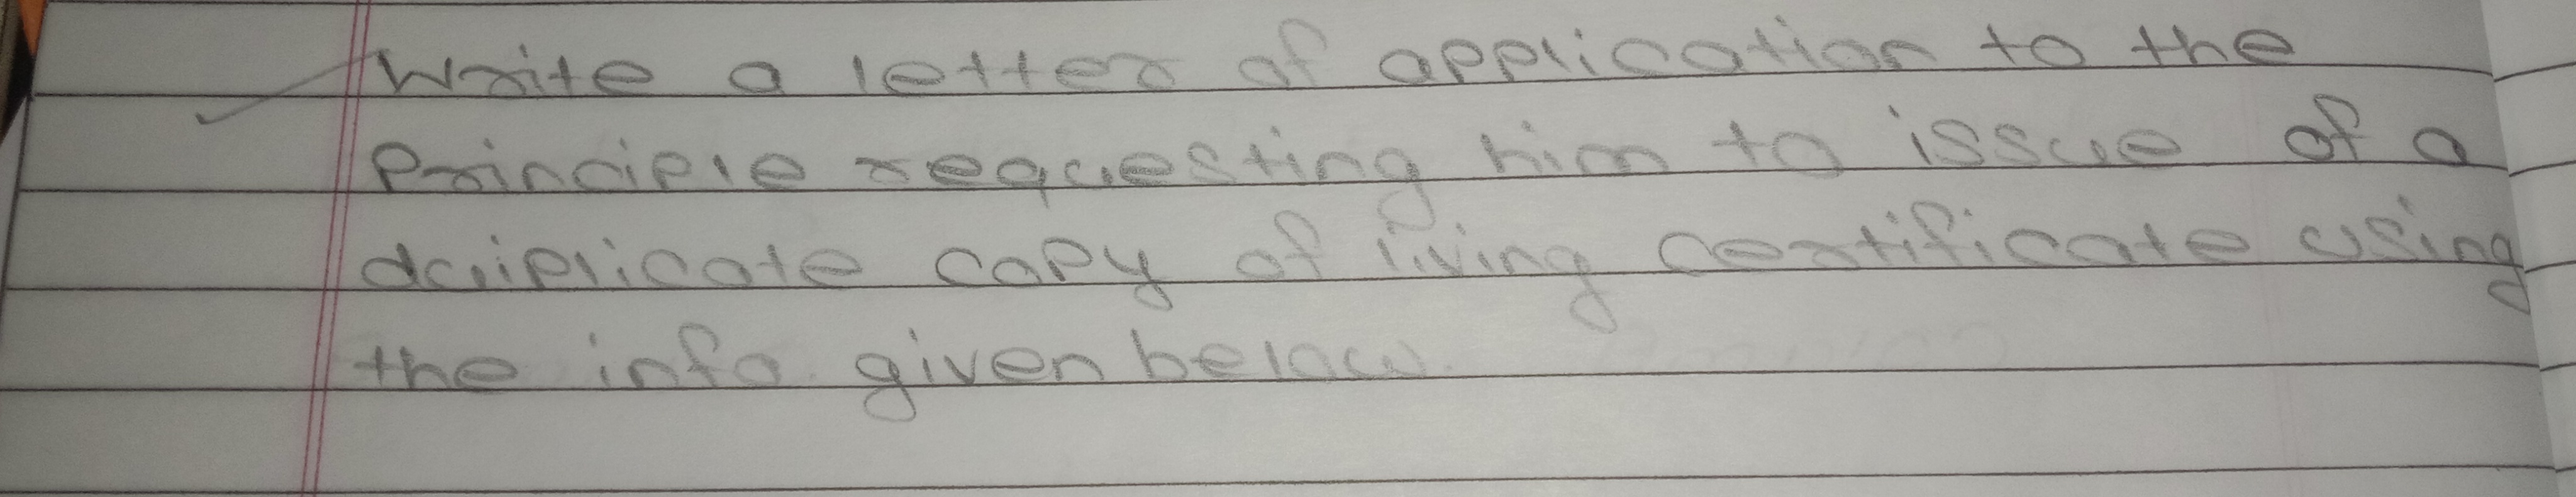 Write a letter of application to the
Principle requesting him to issue of a
duiplicate copy of living certificate using
the info given below.